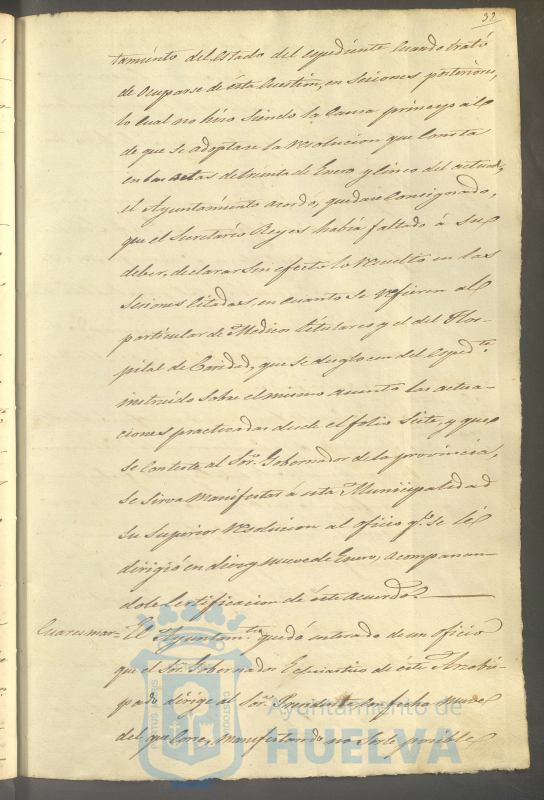 32
tamiento del estado del espediente cuando trató
de ocuparse de ésta cuestion, en sesiones posteriores,
lo cual no hizo siendo la causa principal
de que se adoptase la resolucion que consta
en las actas de treinta de Enero y cinco del actual,
el Ayuntamiento acordó, quedase consignado,
que el Secretario Reyes habia faltado á su
deber, declarar sin efecto lo resuelto en las
sesiones citadas, en cuanto se refieren al
particular de Medicos titulares y el del Hos-
pital de Caridad, que se desglocen del espedte.
instruido sobre el mismo asunto las actua-
ciones practicadas desde el folio siete, y que
se conteste al Sor. Gobernador de la provincia,
se sirva manifestar á esta Municipalidad
su superior resolucion al oficio qe. se le
dirigió en diez y nueve de Enero, acompañan-
dole certificacion de éste acuerdo.
Cuaresmar= El Ayuntamto. quedó enterado de un oficio
que el Sor. Gobernador Eclesiastico de éste Arzobis-
pado dirige al Sor. Presidente con fecha nueve
del que corre, manifestando no serle posible
Ayuntamiento de
HUELVA